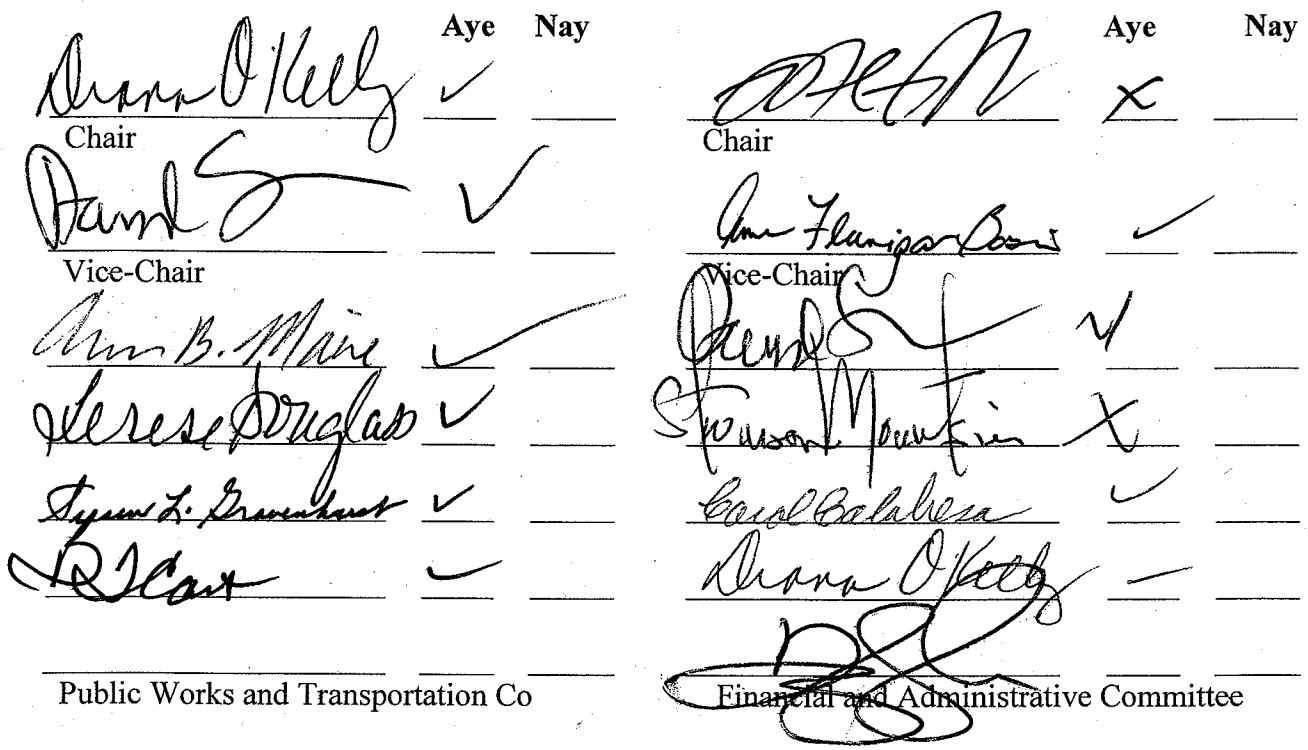 Aye Nay
Diana O'Kelly ✓
Chair
David ✓
Vice-Chair
Ann B. Maine ✓
Terese Douglass ✓
L. Gravenhorst ✓
✓
Public Works and Transportation Co
Aye Nay
X
Chair
Ann Flanigan Bassi ✓
Vice-Chair
David ✓
Stevenson Mountsier X
Carol Calabresa ✓
Diana O'Kelly –
Financial and Administrative Committee